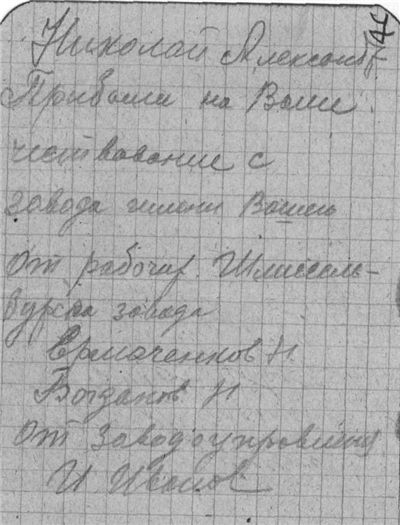 Николай Александ
Прибыли на Ваше
чествование с
завода имени Вашего
от рабочих Шлиссель-
бурска завода
Ермаченков Н
Богданов Н
от заводоуправления
И Иванов